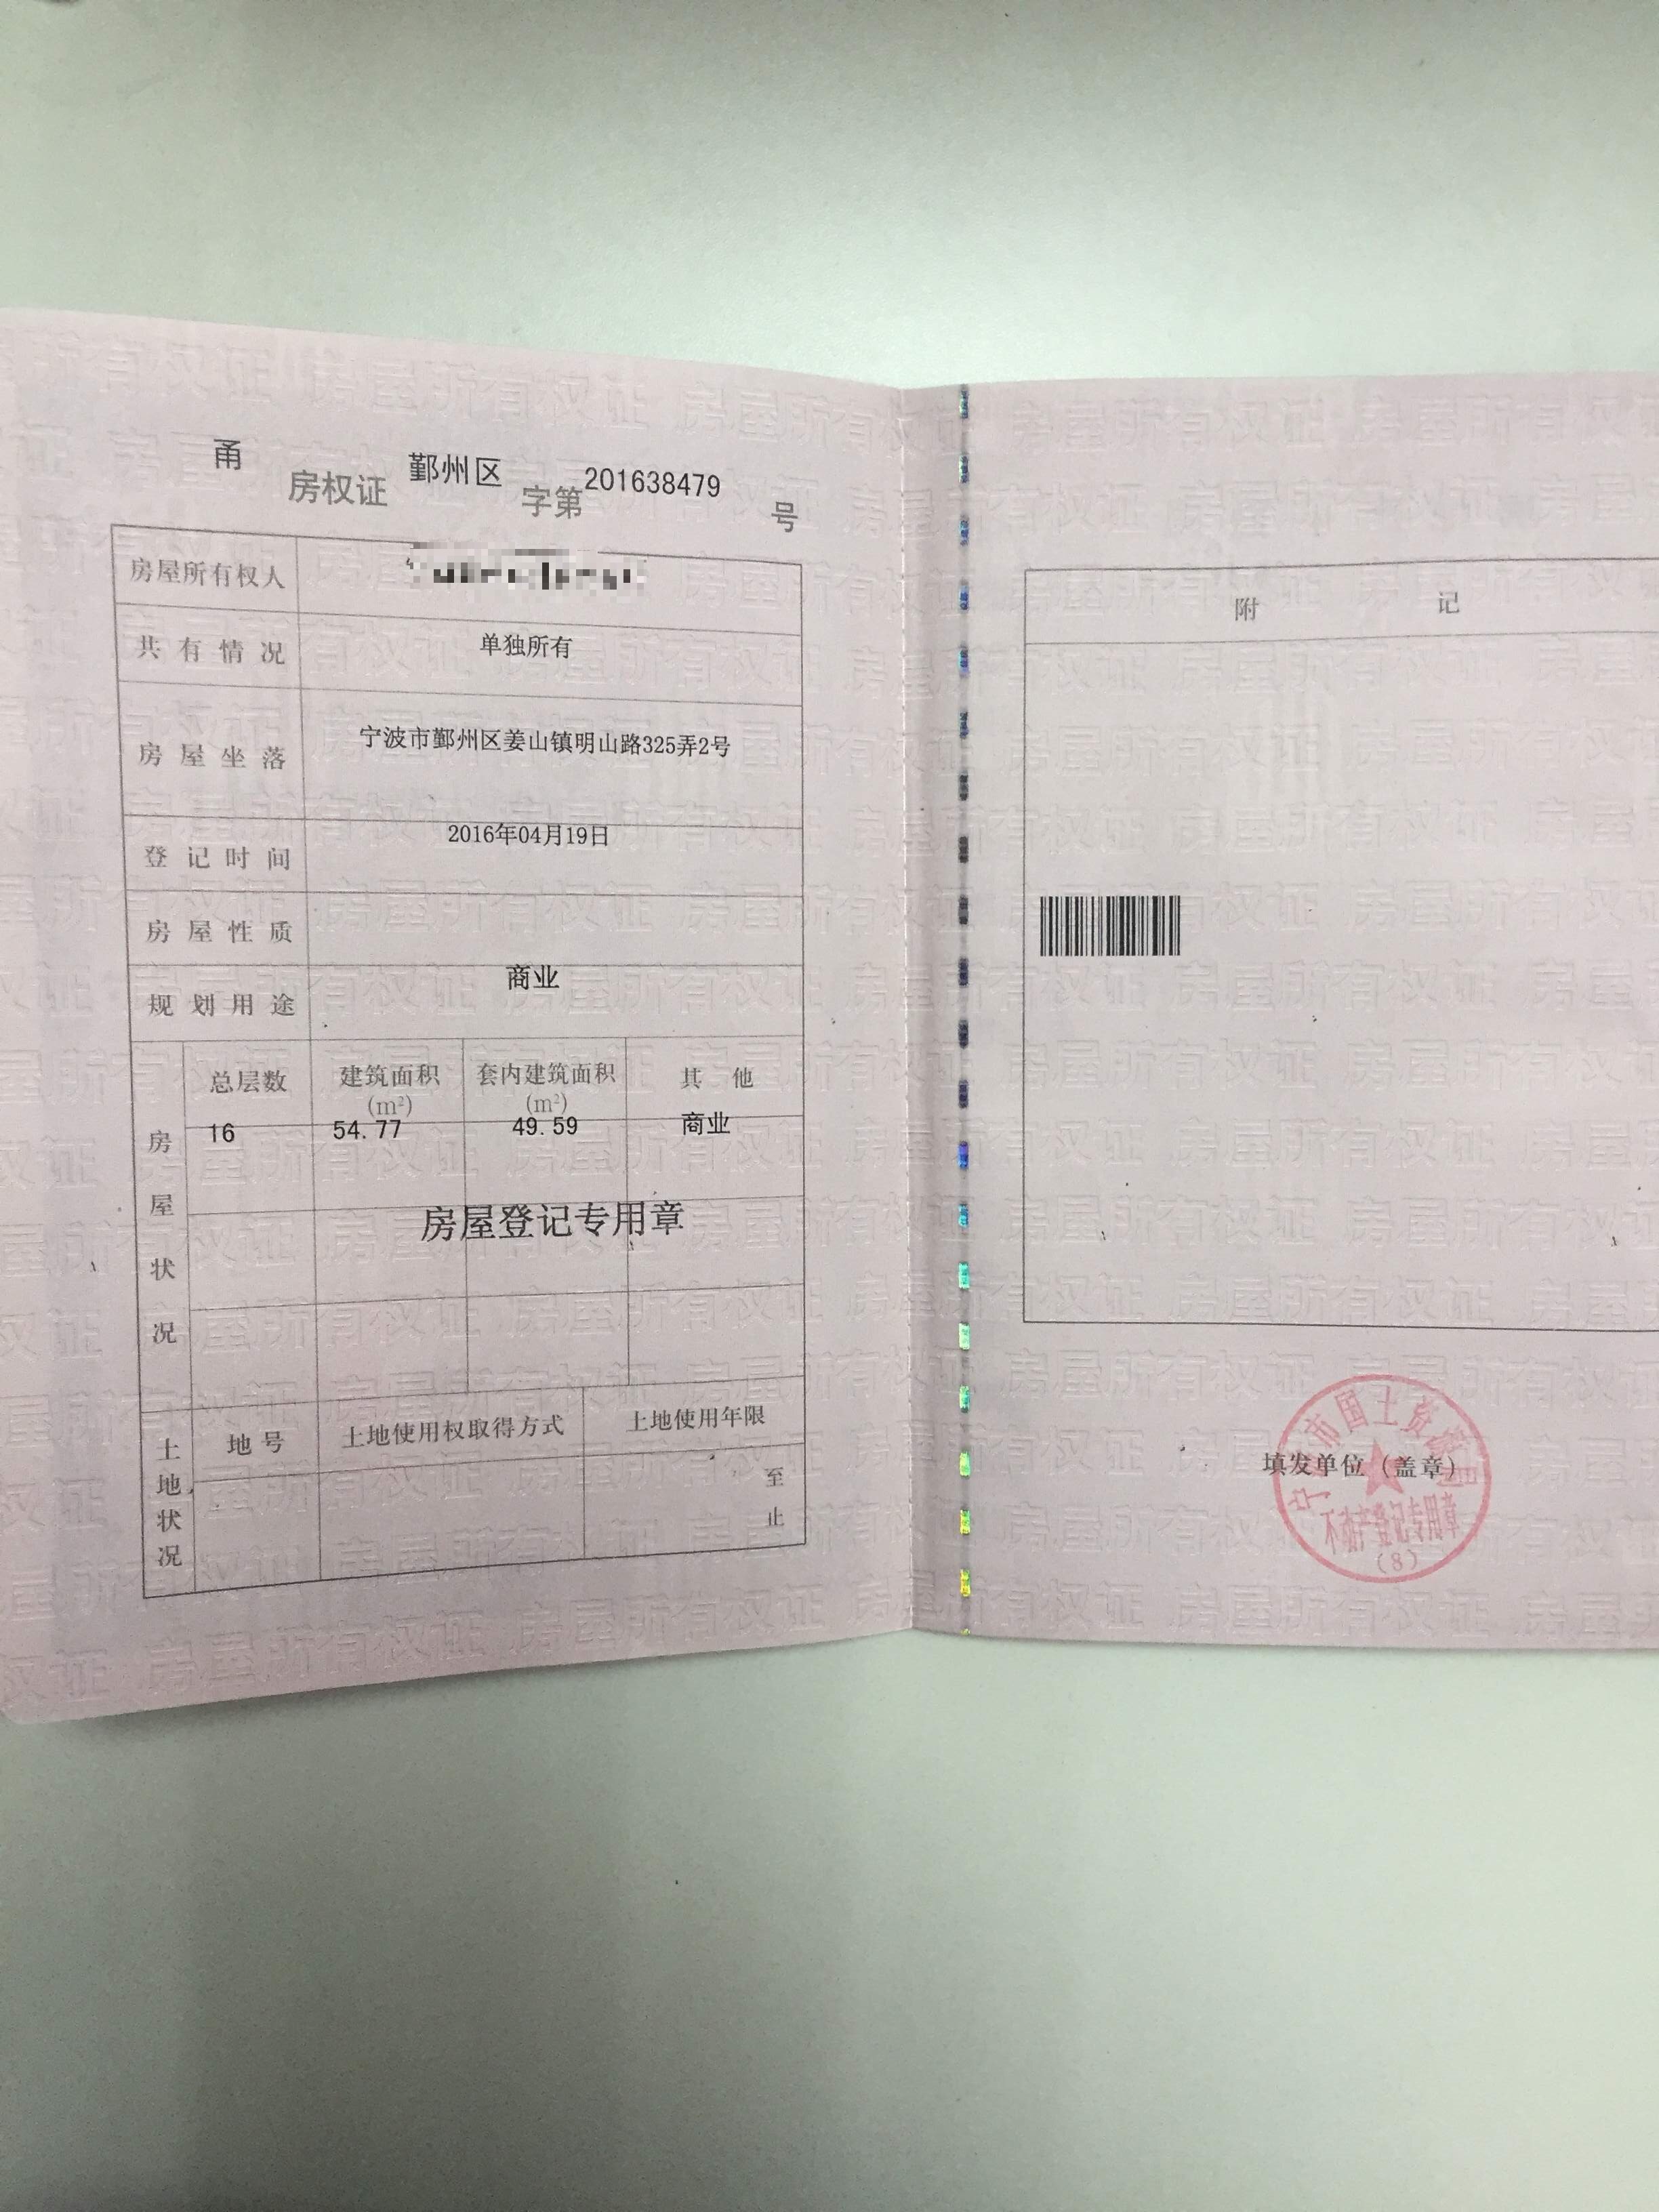 甬 房权证 鄞州区 字第 201638479 号
房屋所有权人
共有情况 单独所有
房屋坐落 宁波市鄞州区姜山镇明山路325弄2号
登记时间 2016年04月19日
房屋性质
规划用途 商业
房屋状况
总层数 建筑面积(m²) 套内建筑面积(m²) 其他
16 54.77 49.59 商业
房屋登记专用章
土地状况
地号 土地使用权取得方式 土地使用年限
至
止
附 记
填发单位（盖章）
宁波市国土资源局
不动产登记专用章
(8)